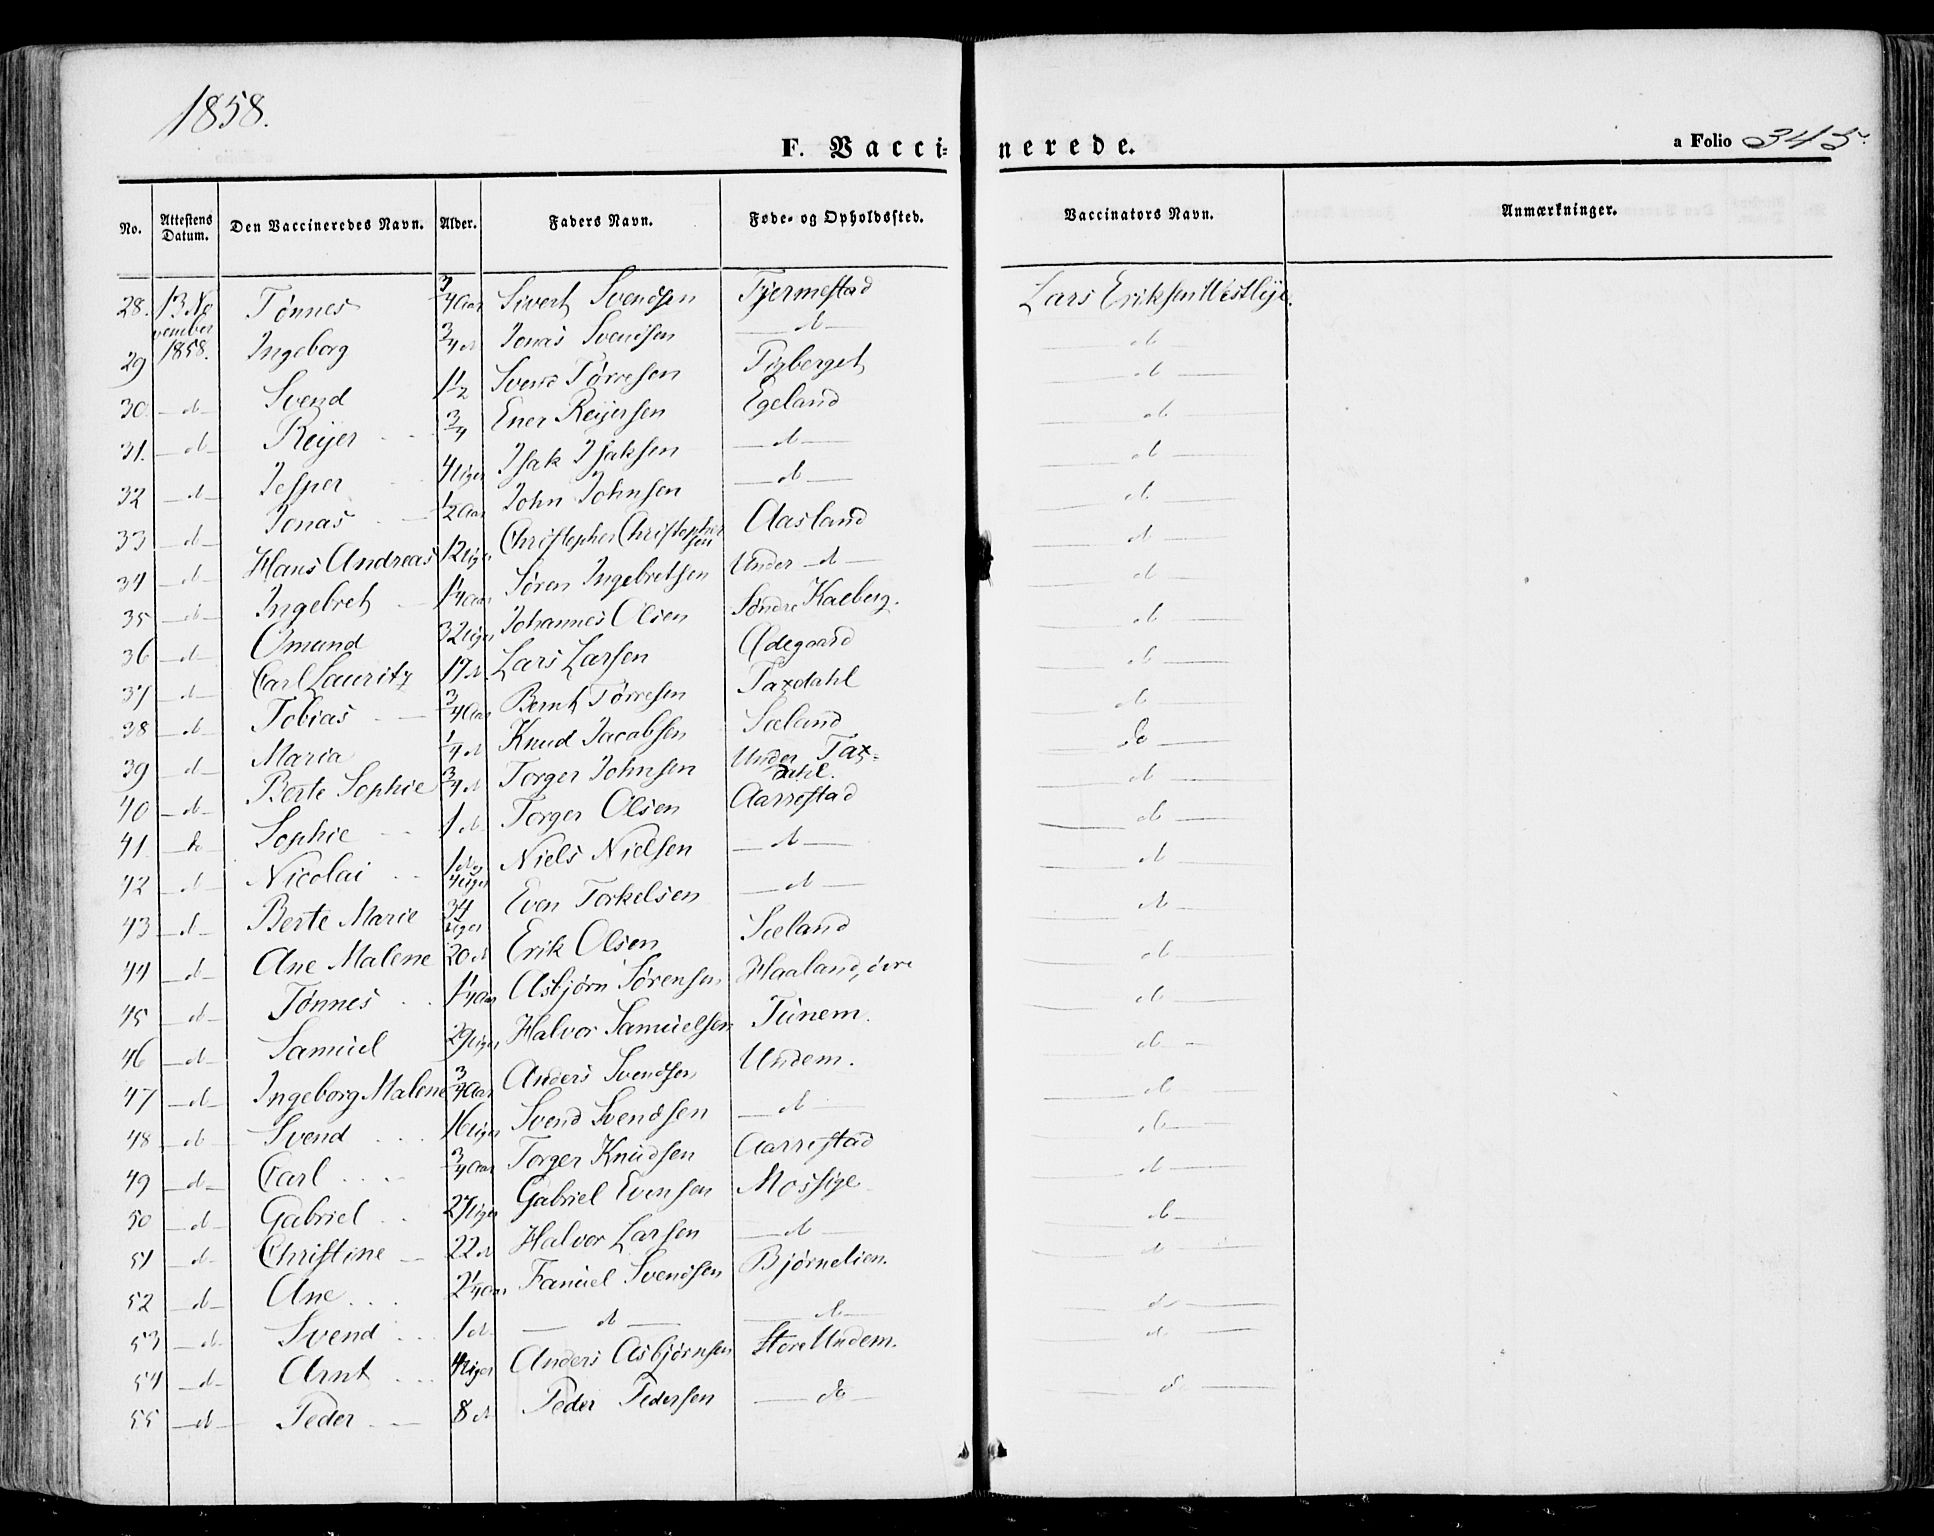 1858.
F. Vaccinerede.
a Folio 345.
No. Attestens Datum. Den Vaccineredes Navn. Alder. Faders Navn. Føde- og Opholdssted. Vaccinators Navn. Anmærkninger.
28. 13 No vember 1858. Tønnes 3/4 Aar Sivert Svendsen Tjermestad Lars Eriksen Westlye.
29 Ingeborg 3/4 d Jonas Svendsen d d
30. d Svend 1 1/2 Svend Tørresen d
31. d Reijer 3/4 Ener Reijersen Egeland d
32 d Jesper Isak Isaksen d d
33 d Jonas 1/2 Aar John Johnsen d d
34 d Hans Andreas 12 Uger Christopher Christophersen Aasland d
35 d Ingebret 1 1/4 Aar Søren Ingebretsen Under d d
36 d Omund 32 Uger Johannes Olsen Søndre Kaeberg. d
37 d Carl Lauritz 17 d Lars Larsen Ødegaard d
38 d Tobias 3/4 Aar Bernt Tørresen Taxdahl d
39 d Maria 1/4 d Knud Jacobsen Sæland do
40 d Berte Sophie 3/4 d Torger Johnsen Under Taxdahl. d
41 do Sophie 1 d Torger Olsen Aarrestad d
42 d Nicolai 1 d og 4 Uger Niels Nielsen d d
43 d Berte Marie 34 Uger Even Torkelsen d d
44 d Ane Malene 20 d Erik Olsen Sæland d
45 d Tønnes 1 1/4 Aar Asbjørn Sørensen Haaland, övre d
46 d Samuel 29 Uger Halvor Samuelsen Tunem. d
47 d Ingeborg Malene 3/4 Aar Anders Svendsen Undem. d
48 d Svend 16 Uger Svend Svendsen d d
49 d Carl 3/4 Aar Torger Knudsen Aarrestad d
50 d Gabriel 27 Uger Gabriel Evensen Mossige d
51 d Christine 22 d Halvor Larsen d d
52 d Ane 2 1/4 Aar Svendsen Bjørnelien. d
53 d Svend 1 d d d d
54 d Arnt Uger Anders Asbjørnsen Store Undem. d
55 d Peder 8 d Peder Pedersen do